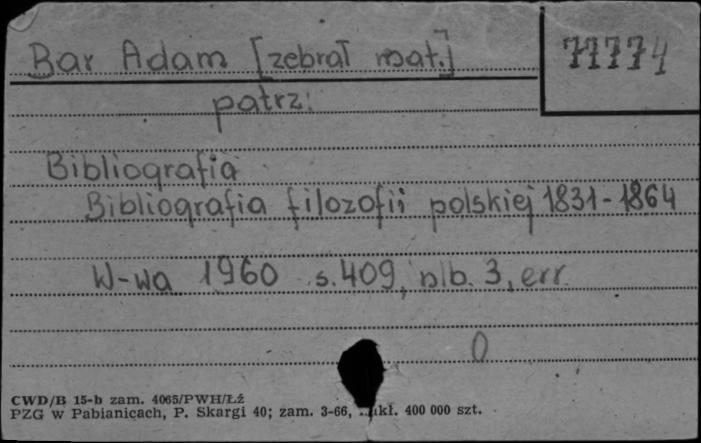 Bar Adam [zebrał mat.] 77774
patrz:
Bibliografia
Bibliografia filozofii polskiej 1831-1864
W-wa 1960 s. 409, nlb. 3, err.
0
CWD/B 15-b zam. 4065/PWH/Łź
PZG w Pabianicach, P. Skargi 40; zam. 3-66, kł. 400 000 szt.